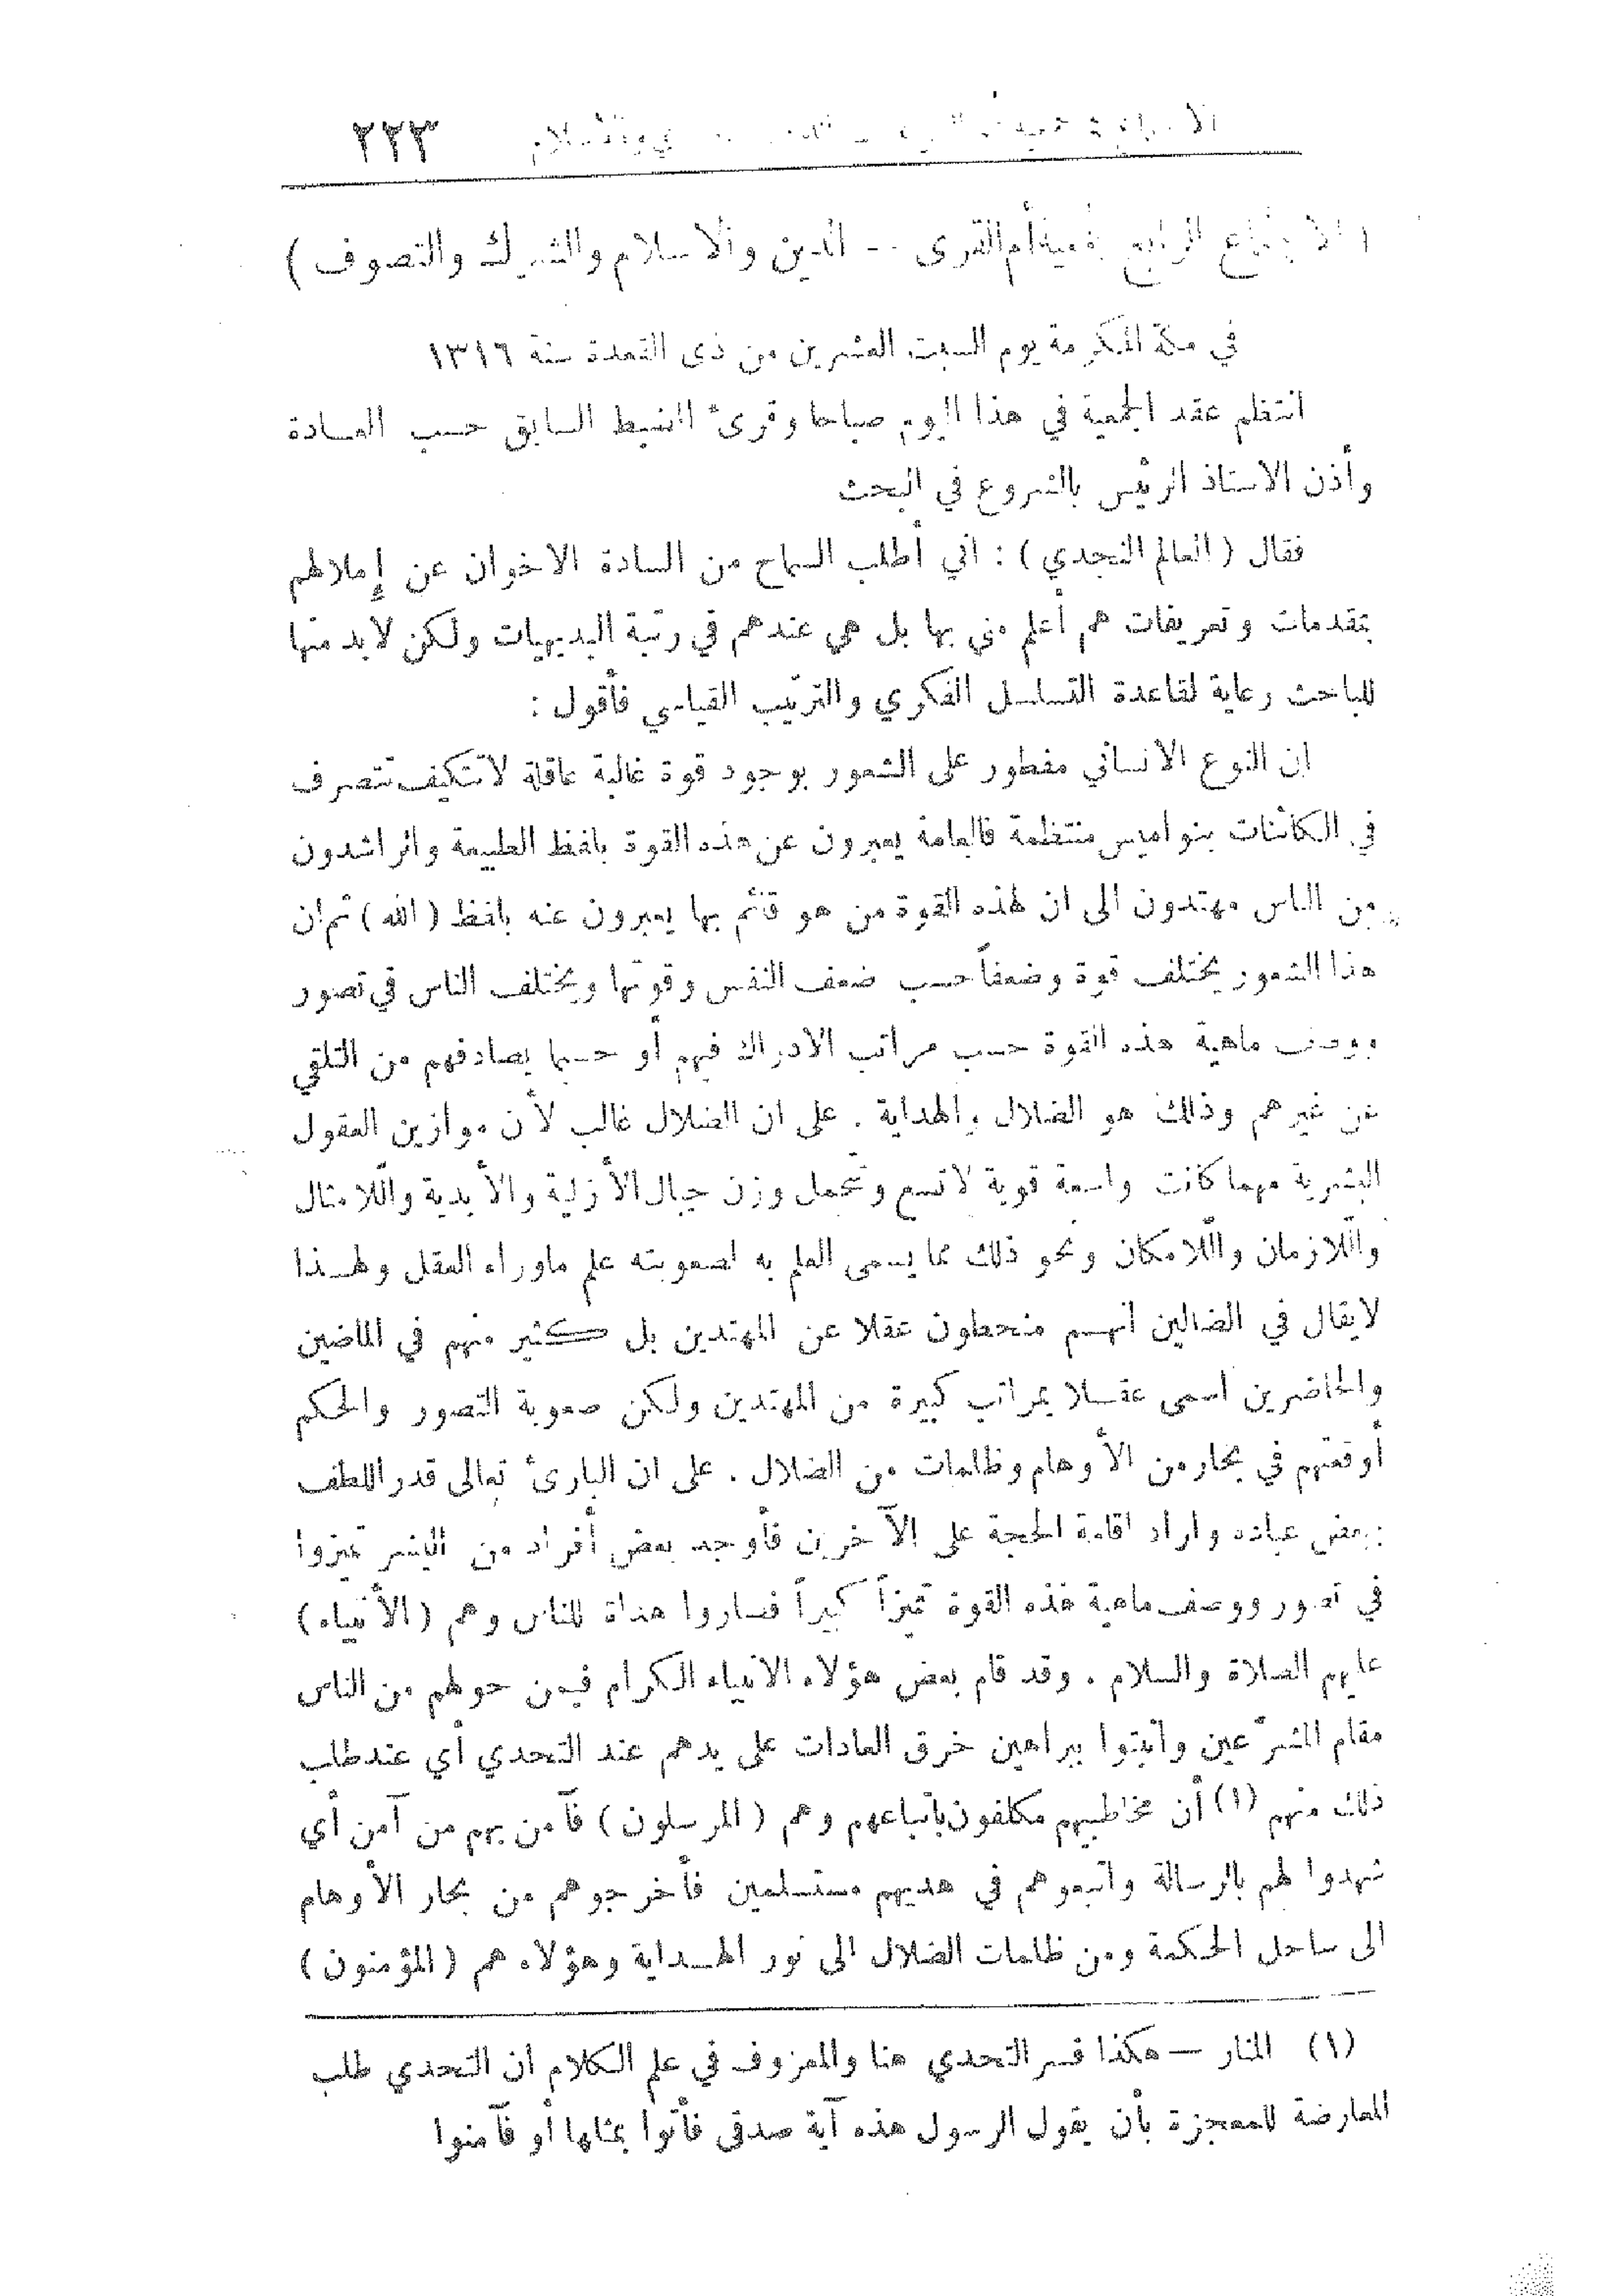 ٢٢٣
الرابع أم القرى -- الدين والاسلام والشرك والتصوف )
في مكة المكرمة يوم السبت العشرين من ذى القعدة سنة ١٣١٦
انتظم عقد الجمعية في هذا اليوم صباحا وقرئ الضبط السابق حسب العـادة
وأذن الاستاذ الرئيس بالشروع في البحث
فقال ( العالم النجدي ) : اني أطلب السماح من السادة الاخوان عن إملالهم
بمقدمات وتعريفات هم أعلم مني بها بل هي عندهم في رتبة البديهيات ولكن لابد منها
للباحث رعاية لقاعدة التسلسل الفكري والترتيب القياسي فأقول :
ان النوع الانساني مفطور على الشعور بوجود قوة غالبة عاقلة لا تتكيف تتصرف
في الكائنات بنواميس منتظمة فالعامة يعبرون عن هذه القوة بلفظ الطبيعة والراشدون
من الناس مهتدون الى ان لهذه القوة من هو قائم بها يعبرون عنه بلفظ ( الله ) ثم ان
هذا الشعور يختلف قوة وضعفاً حسب ضعف النفس وقوتها ويختلف الناس في تصور
ووصف ماهية هذه القوة حسب مراتب الادراك فيهم أو حسبما يصادفهم من التلقي
عن غيرهم وذلك هو الضلال والهداية . على ان الضلال غالب لأن موازين العقول
البشرية مهما كانت واسعة قوية لا تسع وتحمل وزن جبال الأزلية والأبدية واللامثال
واللازمان واللامكان ونحو ذلك مما يسمى العلم به لصعوبته علم ماوراء العقل ولهـذا
لايقال في الضالين انهـم منحطون عقلا عن المهتدين بل كثير منهم في الماضين
والحاضرين اسمى عقـلا بمراتب كبيرة من المهتدين ولكن صعوبة التصور والحكم
أوقعتهم في بحار من الأوهام وظلمات من الضلال . على ان البارئ تعالى قدر اللطف
ببعض عباده واراد اقامة الحجة على الآخرين فأوجد بعض أفراد من البشر تميزوا
في تصور ووصف ماهية هذه القوة تميزاً كبيراً فصاروا هداة للناس وهم ( الأنبياء )
عليهم الصلاة والسلام . وقد قام بعض هؤلاء الانبياء الكرام فيمن حولهم من الناس
مقام المشرّعين واثبتوا ببراهين خرق العادات على يدهم عند التحدي أي عند طلب
ذلك منهم (١) أن مخاطبيهم مكلفون باتباعهم وهم ( المرسلون ) فآمن بهم من آمن أي
شهدوا لهم بالرسالة واتبعوهم في هديهم مستسلمين فأخرجوهم من بحار الأوهام
الى ساحل الحكمة ومن ظلمات الضلال الى نور الهـداية وهؤلاء هم ( المؤمنون )
(١) المنار — هكذا فسر التحدي هنا والمعروف في علم الكلام ان التحدي طلب
المعارضة للمعجزة بأن يقول الرسول هذه آية صدقي فأتوا بمثلها أو فآمنوا